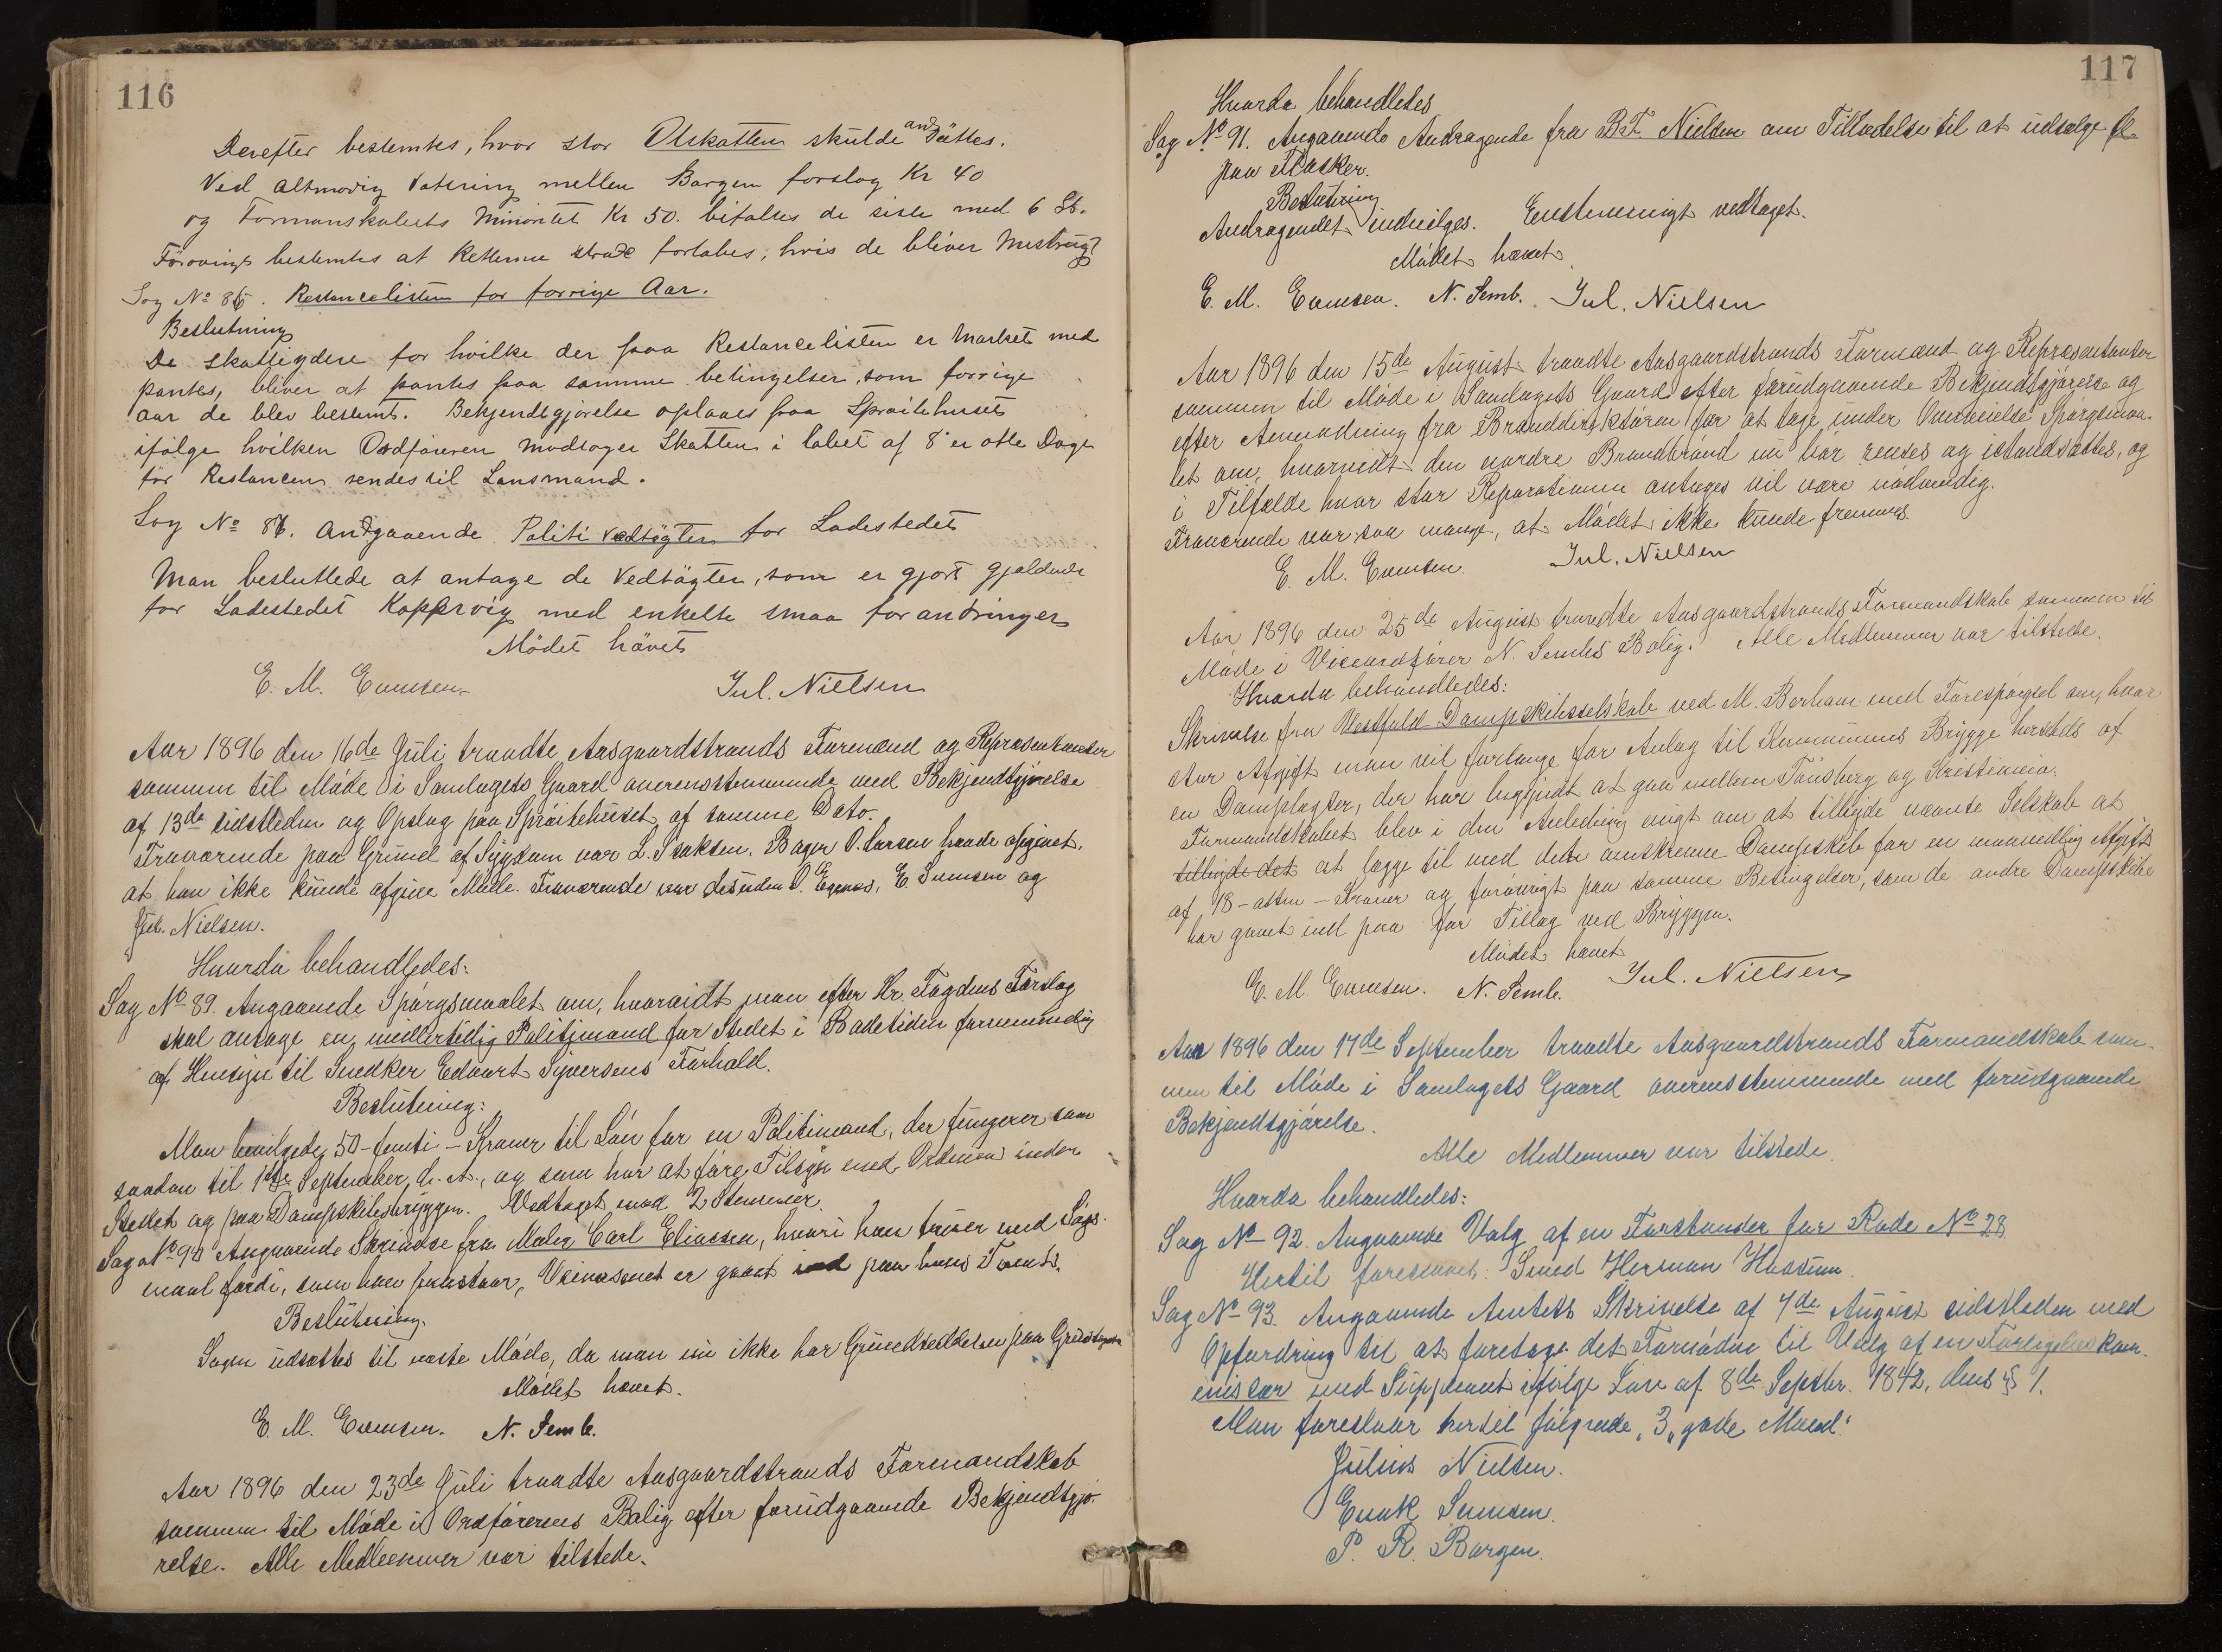 116
Derefter bestemtes, hvor stor Ölskatten skulde andsättes.
Ved altmodig Votering mellem Borgen forslag Kr 40
og Formanskabets Minoritet Kr 50. bifaltes de siste med 6 St.
Förövrigt bestemtes at Retterne strax fortabes, hvis de bliver
Sag No 85. Restancelisten for forrige Aar.
Beslutning
De skatteydere for hvilke der paa Restancelisten er market med
pantes, bliver at pantes paa samme betingelser, som forrige
aar de blev bestemt. Bekjendtgjörelse oplaaes paa Spröitehuset
ifölge hvilken Ordföreren modtager Skatten i löbet af 8 er otte Dage
för Restancen sendes til Lensmand.
Sag No 86. andgaaende Politi vedtögten for Ladestedet
Man besluttede at antage de Vedtögter, som er gjort gjeldende
for Ladestedet Koppervig med enkelte smaa forandringer
Mödet hävet
E. M. Evensen Jul. Nielsen
Aar 1896 den 16de Juli traadte Aasgaardstrands Formænd og Repræsentanter
sammen til Möde i Samlagets Gaard overensstemmende med Bekjendtgjörelse
af 13de sidstleden og Opslag paa Spröitehuset af samme Dato.
Fraværende paa Grund af Sygdom var L. Isaksen. Bager O. Larsen havde opgivet,
at han ikke kunde afgive Möde. Fraværende var desuden O. Egenes, E. Sumsen og
Jul. Nielsen.
Hvorda behandledes:
Sag No 89. Angaaende Spörgsmaalet om, hvorvidt man efter Hr. Fogdens Forslag
skal antage en midlertidig Politimand for Stedet i Badetiden fornemmelig
af Hensyn til Snedker Edvart Syversens Forhold.
Beslutning:
Man bevilgede 50 - femti - Kroner til Lön for en Politimand, der fungerer som
saadan til 1ste September d. A., og som har at före Tilsyn med Ordenen inden
Stedet og paa Dampskibsbryggen. Vedtaget mod 2 Stemmer.
Sag No 90 Angaaende Skrivelse fra Maler Carl Eliassen, hvori han truer med Sögs-
maal fordi, som han paastaar, Veivæsenet er gaaet ind paa hans Tomt.
Beslutning.
Sagen udsættes til næste Möde, da man nu ikke har Grundseddelen paa
Mödet hævet.
E. M. Evensen. N. Semb.
Aar 1896 den 23de Juli traadte Aasgaardstrands Formandskab
sammen til Möde i Ordförerens Bolig efter forudgaaende Bekjendtgjö-
relse. Alle Medlemmer var tilstede.
117
Hvorda behandledes
Sag No 91. Angaaende Andragende fra B.F. Nielsen om Tilladelse til at udsælge Öl
paa Flasker.
Beslutning
Andragendet indvilges. Enstemmigt vedtaget.
Mödet hævet.
E. M. Evensen. N. Semb. Jul. Nielsen
Aar 1896 den 15de August traadte Aasgaardstrands Formænd og Repræsentanter
sammen til Möde i Samlagets Gaard efter forudgaaende Bekjendtgjörelse og
efter Anmodning fra Branddirektören for at tage under Overveielse Spörgsmaa-
let om, hvorvidt den nordre Brandbrönd nu bör renses og istandsættes, og
i Tilfælde hvor stor Reparationen antages vil være nödvendig.
Fraværende var saa mange, at Mödet ikke kunde fremmes.
E. M. Evensen. Jul. Nielsen
Aar 1896 den 25de August traadte Aasgaardstrands Formandskab sammen til
Möde i Viceordförer N. Sembs Bolig. Alle Medlemmer var tilstede.
Hvorda behandledes:
Skrivelse fra Vestfold Dampskibsselskab ved M. Borham med Forespörgsel om, hvor
stor Afgift man vil forlange for Anlög til Kommunens Brygge hersteds af
en Damplogter, der har begyndt at gaa mellem Tönsberg og Kristiania.
Formandskabet blev i den Anledning enigt om at tillade nævnte Selskab at
tillade det at lægge til med dets omskrevne Dampskib for en maanedlig Afgift
af 18 - atten - Kroner og forövrigt paa samme Betingelser, som de andre Dampskibe
har gaaet ind paa for Tillæg ved Bryggen.
Mödet hævet
E. M. Evensen. N. Semb. Jul. Nielsen
Aar 1896 den 17de September traadte Aasgaardstrands Formandskab sam-
men til Möde i Samlagets Gaard overensstemmende med forudgaaende
Bekjendtgjörelse.
Alle Medlemmer var tilstede.
Hvorda behandledes:
Sag No 92. Angaaende Valg af en Forstander for Rode No 28
Hertil foreslaaes: Smed Herman Haasum.
Sag No 93. Angaaende Amtets Skrivelse af 7de August sidstleden med
Opfordring til at foretage det Fornödne til Valg af en Forligelseskom-
missær med Suppleant ifölge Lov af 8de Septbr. 1842, dens § 1.
Man foreslaar hertil fölgende „3„ gode Mænd:
Julius Nielsen.
Enok Sumsen.
P. R. Borgen.